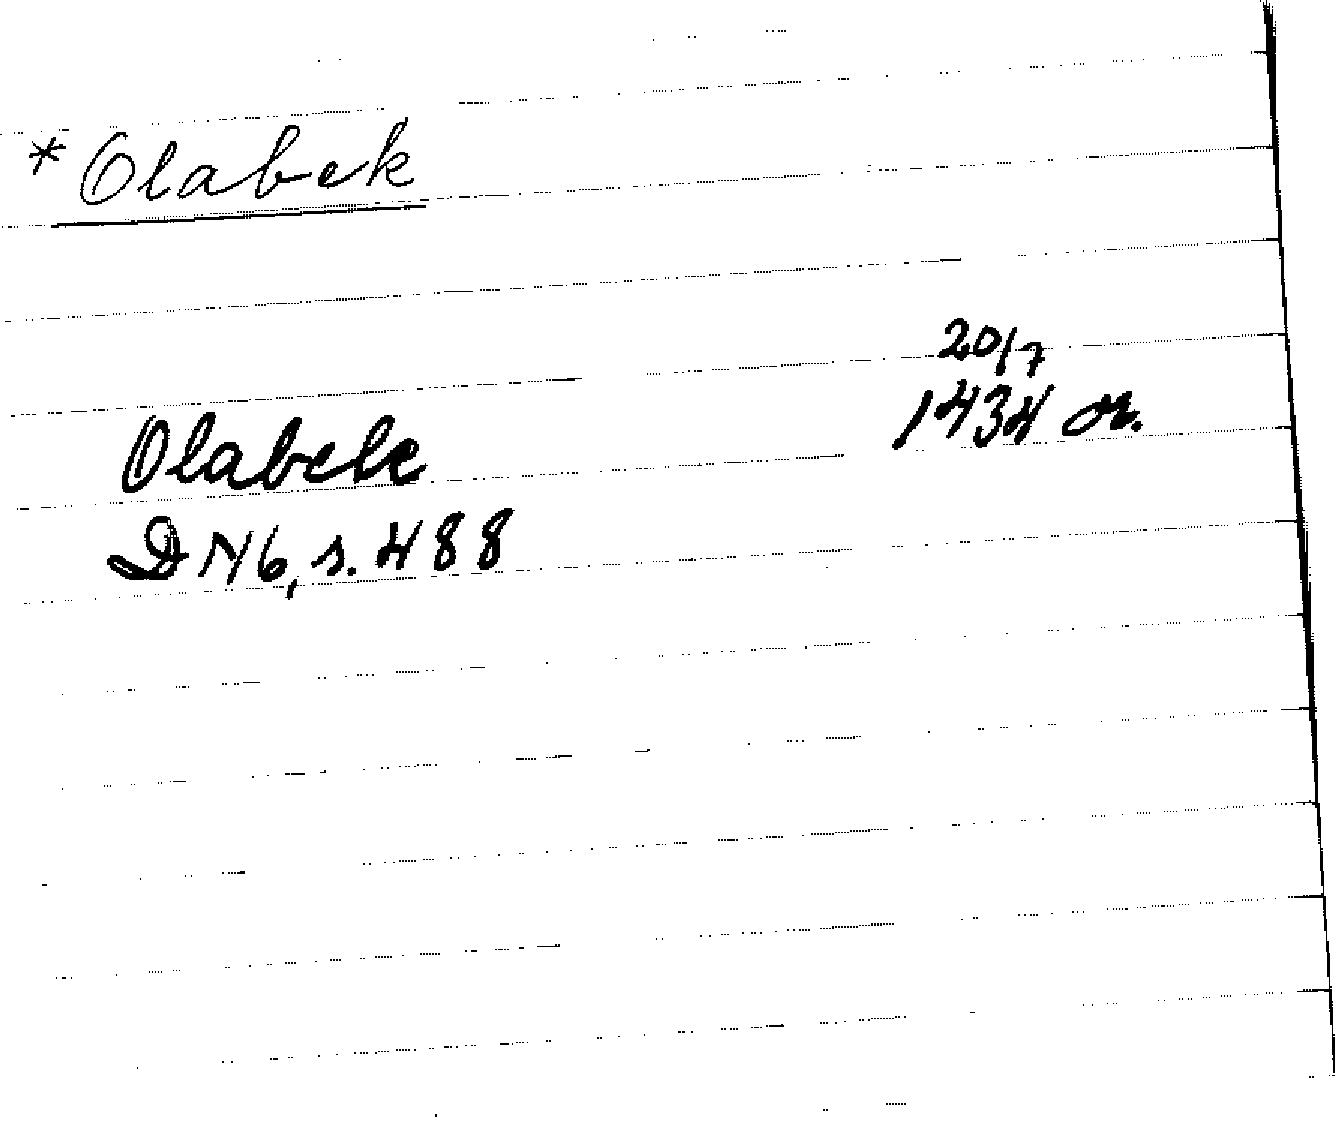 *Olabek
20/7
1434 or.
Olabek
DN6, s. 488